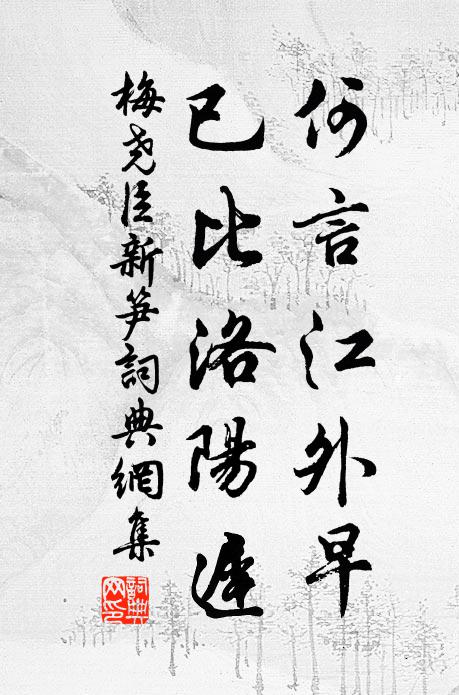 何言江外早
已比洛陽遲
梅堯臣新笋詞典網集
詞典網印